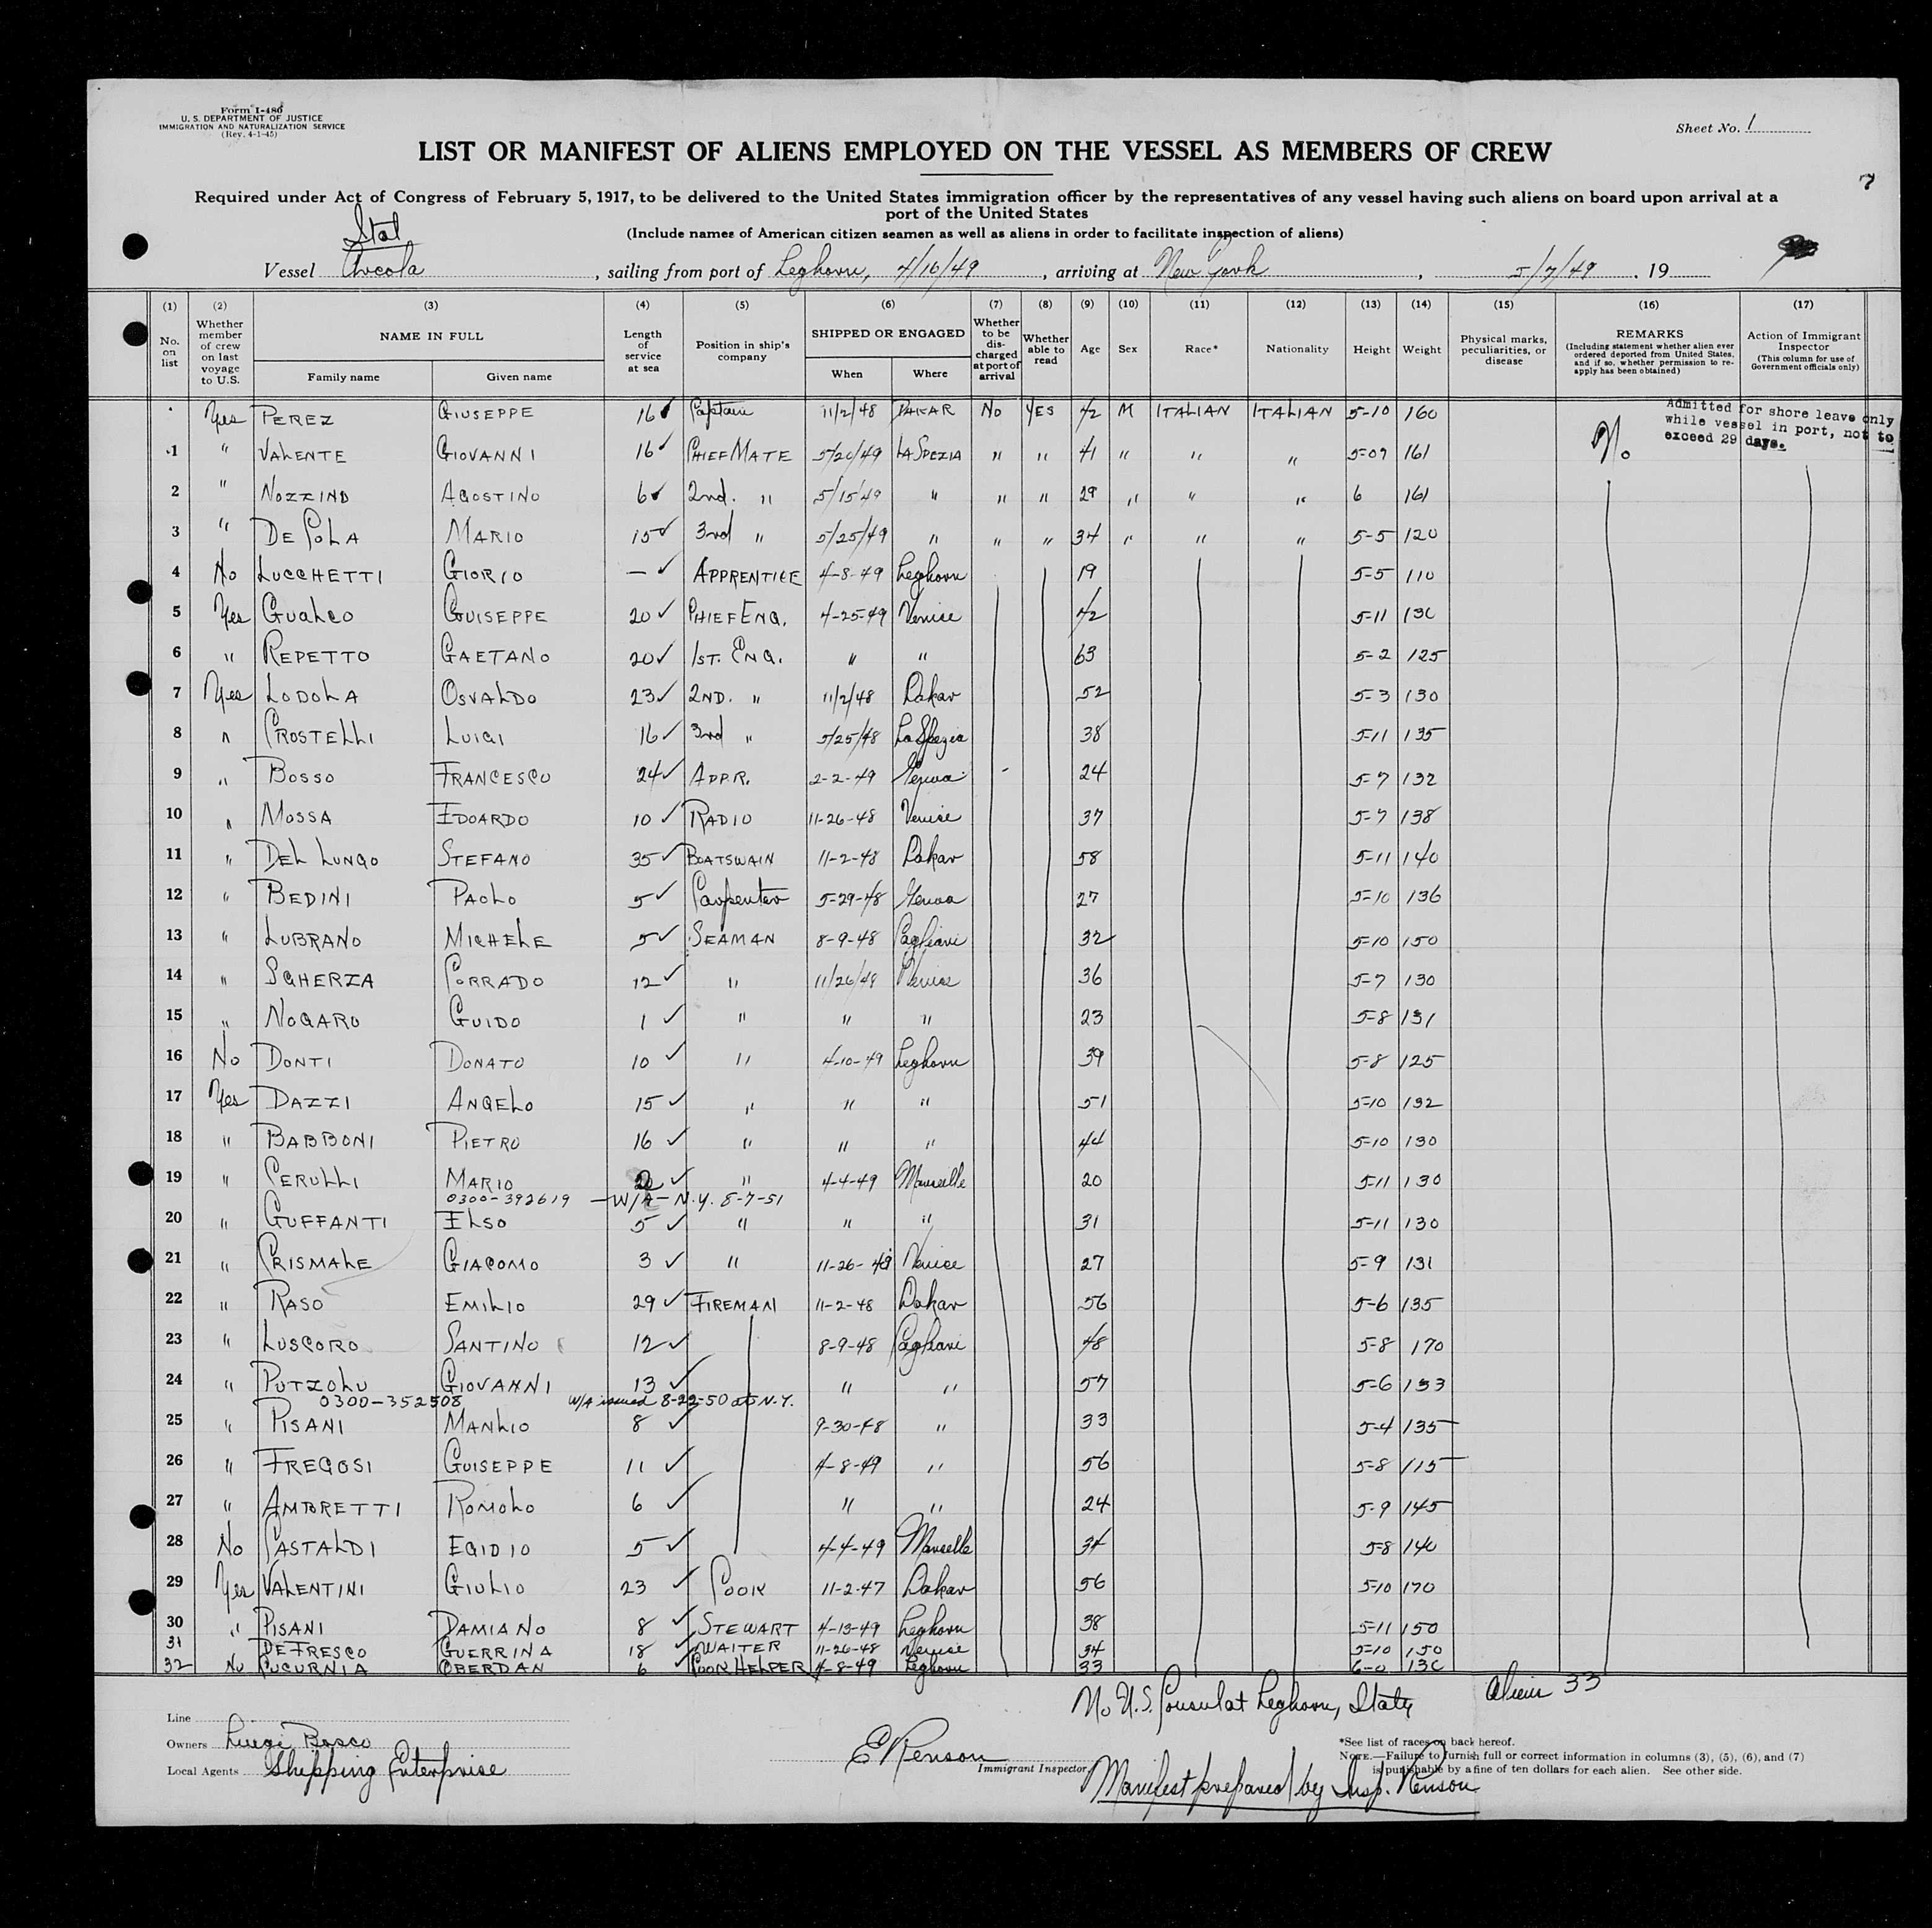 Form I-480
U. S. DEPARTMENT OF JUSTICE
IMMIGRATION AND NATURALIZATION SERVICE
(Rev. 4-1-45)
Sheet No. 1
LIST OR MANIFEST OF ALIENS EMPLOYED ON THE VESSEL AS MEMBERS OF CREW
7
Required under Act of Congress of February 5, 1917, to be delivered to the United States immigration officer by the representatives of any vessel having such aliens on board upon arrival at a
port of the United States
(Include names of American citizen seamen as well as aliens in order to facilitate inspection of aliens)
Ital
Vessel Arcola, sailing from port of Leghorn, 4/16/49, arriving at New York, 5/7/49, 19
(1) (2) (3) (4) (5) (6) (7) (8) (9) (10) (11) (12) (13) (14) (15) (16) (17)
No. on list
Whether member of crew on last voyage to U.S.
NAME IN FULL
Family name Given name
Length of service at sea
Position in ship's company
SHIPPED OR ENGAGED
When Where
Whether to be discharged at port of arrival
Whether able to read
Age
Sex
Race*
Nationality
Height
Weight
Physical marks, peculiarities, or disease
REMARKS
(Including statement whether alien ever ordered deported from United States, and if so, whether permission to re-apply has been obtained)
Action of Immigrant Inspector
(This column for use of Government officials only)
Yes PEREZ GIUSEPPE 16 ✓ Captain 11/2/48 DAKAR No YES 42 M ITALIAN ITALIAN 5-10 160
Admitted for shore leave only
while vessel in port, not to
exceed 29 days.
1 " VALENTE GIOVANNI 16 ✓ CHIEF MATE 5/20/49 LA SPEZIA " " 41 " " " 5-09 161 No
2 " NOZZINO AGOSTINO 6 ✓ 2nd. " 5/15/49 " " " 29 " " " 6 161
3 " DE POLA MARIO 15 ✓ 3rd " 5/25/49 " " " 34 " " " 5-5 120
4 No LUCCHETTI GIORIO — ✓ APPRENTICE 4-8-49 Leghorn 19 5-5 110
5 Yes GUALCO GUISEPPE 20 ✓ CHIEF ENG. 4-25-49 Venice 42 5-11 130
6 " REPETTO GAETANO 20 ✓ 1ST. ENG. " " 63 5-2 125
7 Yes LODOLA OSVALDO 23 ✓ 2ND. " 11/2/48 Dakar 52 5-3 130
8 " CROSTELLI LUIGI 16 ✓ 3rd " 5/25/48 La Spezia 38 5-11 135
9 " BOSSO FRANCESCO 24 ✓ APPR. 2-2-49 Genoa 24 5-7 132
10 " MOSSA EDOARDO 10 ✓ RADIO 11-26-48 Venice 37 5-7 138
11 " DEL LUNGO STEFANO 35 ✓ BOATSWAIN 11-2-48 Dakar 58 5-11 140
12 " BEDINI PAOLO 5 ✓ Carpenter 5-29-48 Genoa 27 5-10 136
13 " LUBRANO MICHELE 5 ✓ SEAMAN 8-9-48 Cagliari 32 5-10 150
14 " SGHERZA CORRADO 12 ✓ " 11/26/48 Venice 36 5-7 130
15 " NOGARO GUIDO 1 ✓ " " " 23 5-8 131
16 No DONTI DONATO 10 ✓ " 4-10-49 Leghorn 39 5-8 125
17 Yes DAZZI ANGELO 15 ✓ " " " 51 5-10 132
18 " BABBONI PIETRO 16 ✓ " " " 44 5-10 130
19 " CERULLI MARIO 2 ✓ " 4-4-49 Marseille 20 5-11 130
0300-392619 — W/A — N.Y. 8-7-51
20 " GUFFANTI ELSO 5 ✓ " " " 31 5-11 130
21 " CRISMALE GIACOMO 3 ✓ " 11-26-48 Venice 27 5-9 131
22 " RASO EMILIO 29 ✓ FIREMAN 11-2-48 Dakar 56 5-6 135
23 " LUSCORO SANTINO 12 ✓ 8-9-48 Cagliari 48 5-8 170
24 " PUTZOLU GIOVANNI 13 ✓ " " 57 5-6 133
0300-352508 W/A issued 8-22-50 at N.Y.
25 " PISANI MANLIO 8 ✓ 9-30-48 " 33 5-4 135
26 " FREGOSI GUISEPPE 11 ✓ 4-8-49 " 56 5-8 115
27 " AMBRETTI ROMOLO 6 ✓ " " 24 5-9 145
28 No CASTALDI EGIDIO 5 ✓ 4-4-49 Marseille 34 5-8 140
29 Yes VALENTINI GIULIO 23 ✓ COOK 11-2-47 Dakar 56 5-10 170
30 " PISANI DAMIANO 8 ✓ STEWART 4-13-49 Leghorn 38 5-11 150
31 DE FRESCO GUERRINA 18 ✓ WAITER 11-26-48 Venice 34 5-10 150
32 No CUCURNIA OBERDAN 6 ✓ COOK HELPER 4-8-49 Leghorn 33 6-0 130
No U.S. Consulat Leghorn, Italy
Aliens 33
Line
Owners Luigi Bosco
Local Agents Shipping Enterprise
E Renson
Immigrant Inspector.
*See list of races on back hereof.
NOTE.—Failure to furnish full or correct information in columns (3), (5), (6), and (7)
is punishable by a fine of ten dollars for each alien. See other side.
Manifest prepared by Insp. Renson